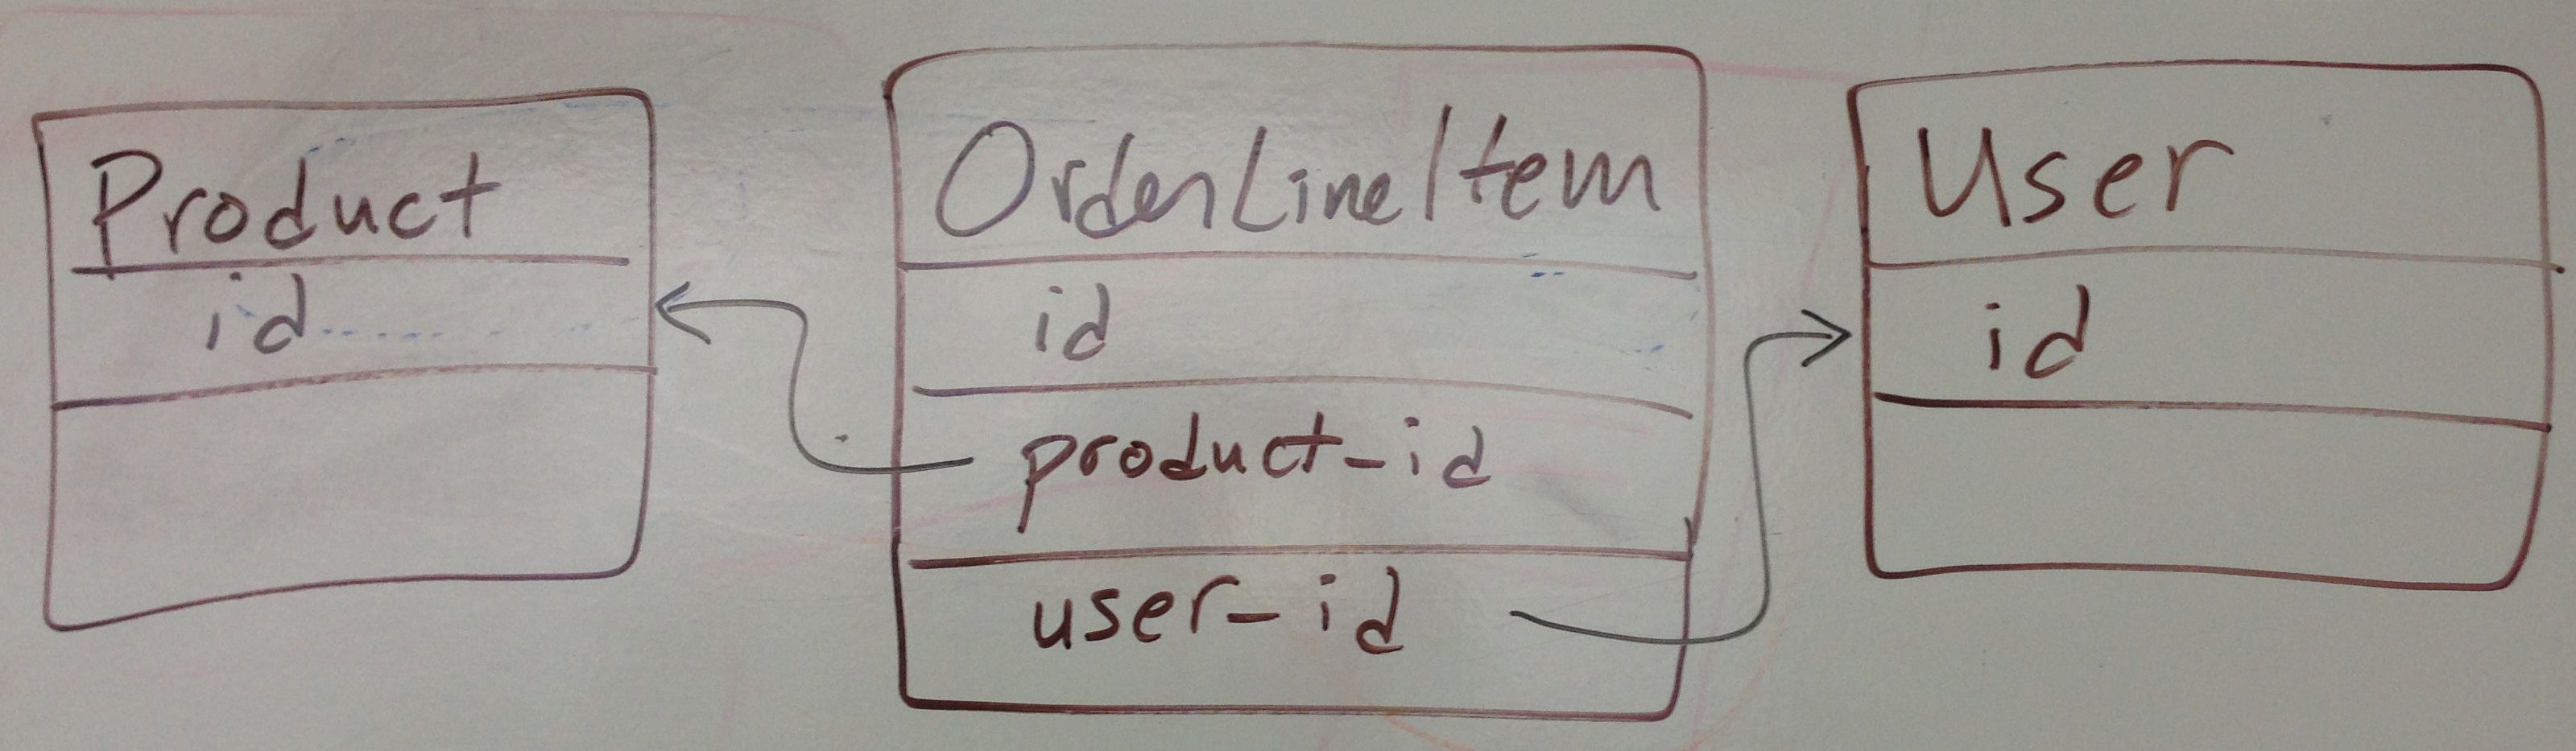 Product
id
OrderLineItem
id
product-id
user-id
User
id